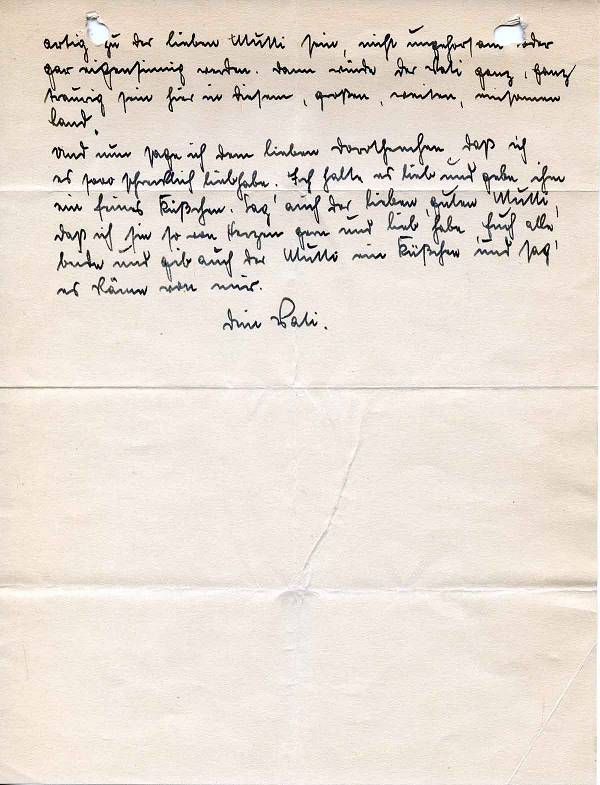 artig zu der lieben Mutti sein, nicht ungehorsam oder
gar eigensinnig werden. Dann würde der Vati ganz, ganz
traurig sein hier in diesem, großen, weiten, einsamen
Land.
Und nun sage ich dem lieben Dorothenchen, daß ich
es sooo schrecklich liebhabe. Ich halte es lieb und gebe ihm
ein feines Küßchen. Sag' auch der lieben, guten Mutti,
daß ich sie so von Herzen gern und lieb habe Euch alle
beide und gib auch der Mutti ein Küßchen und sag'
es käme von mir.
Dein Vati.